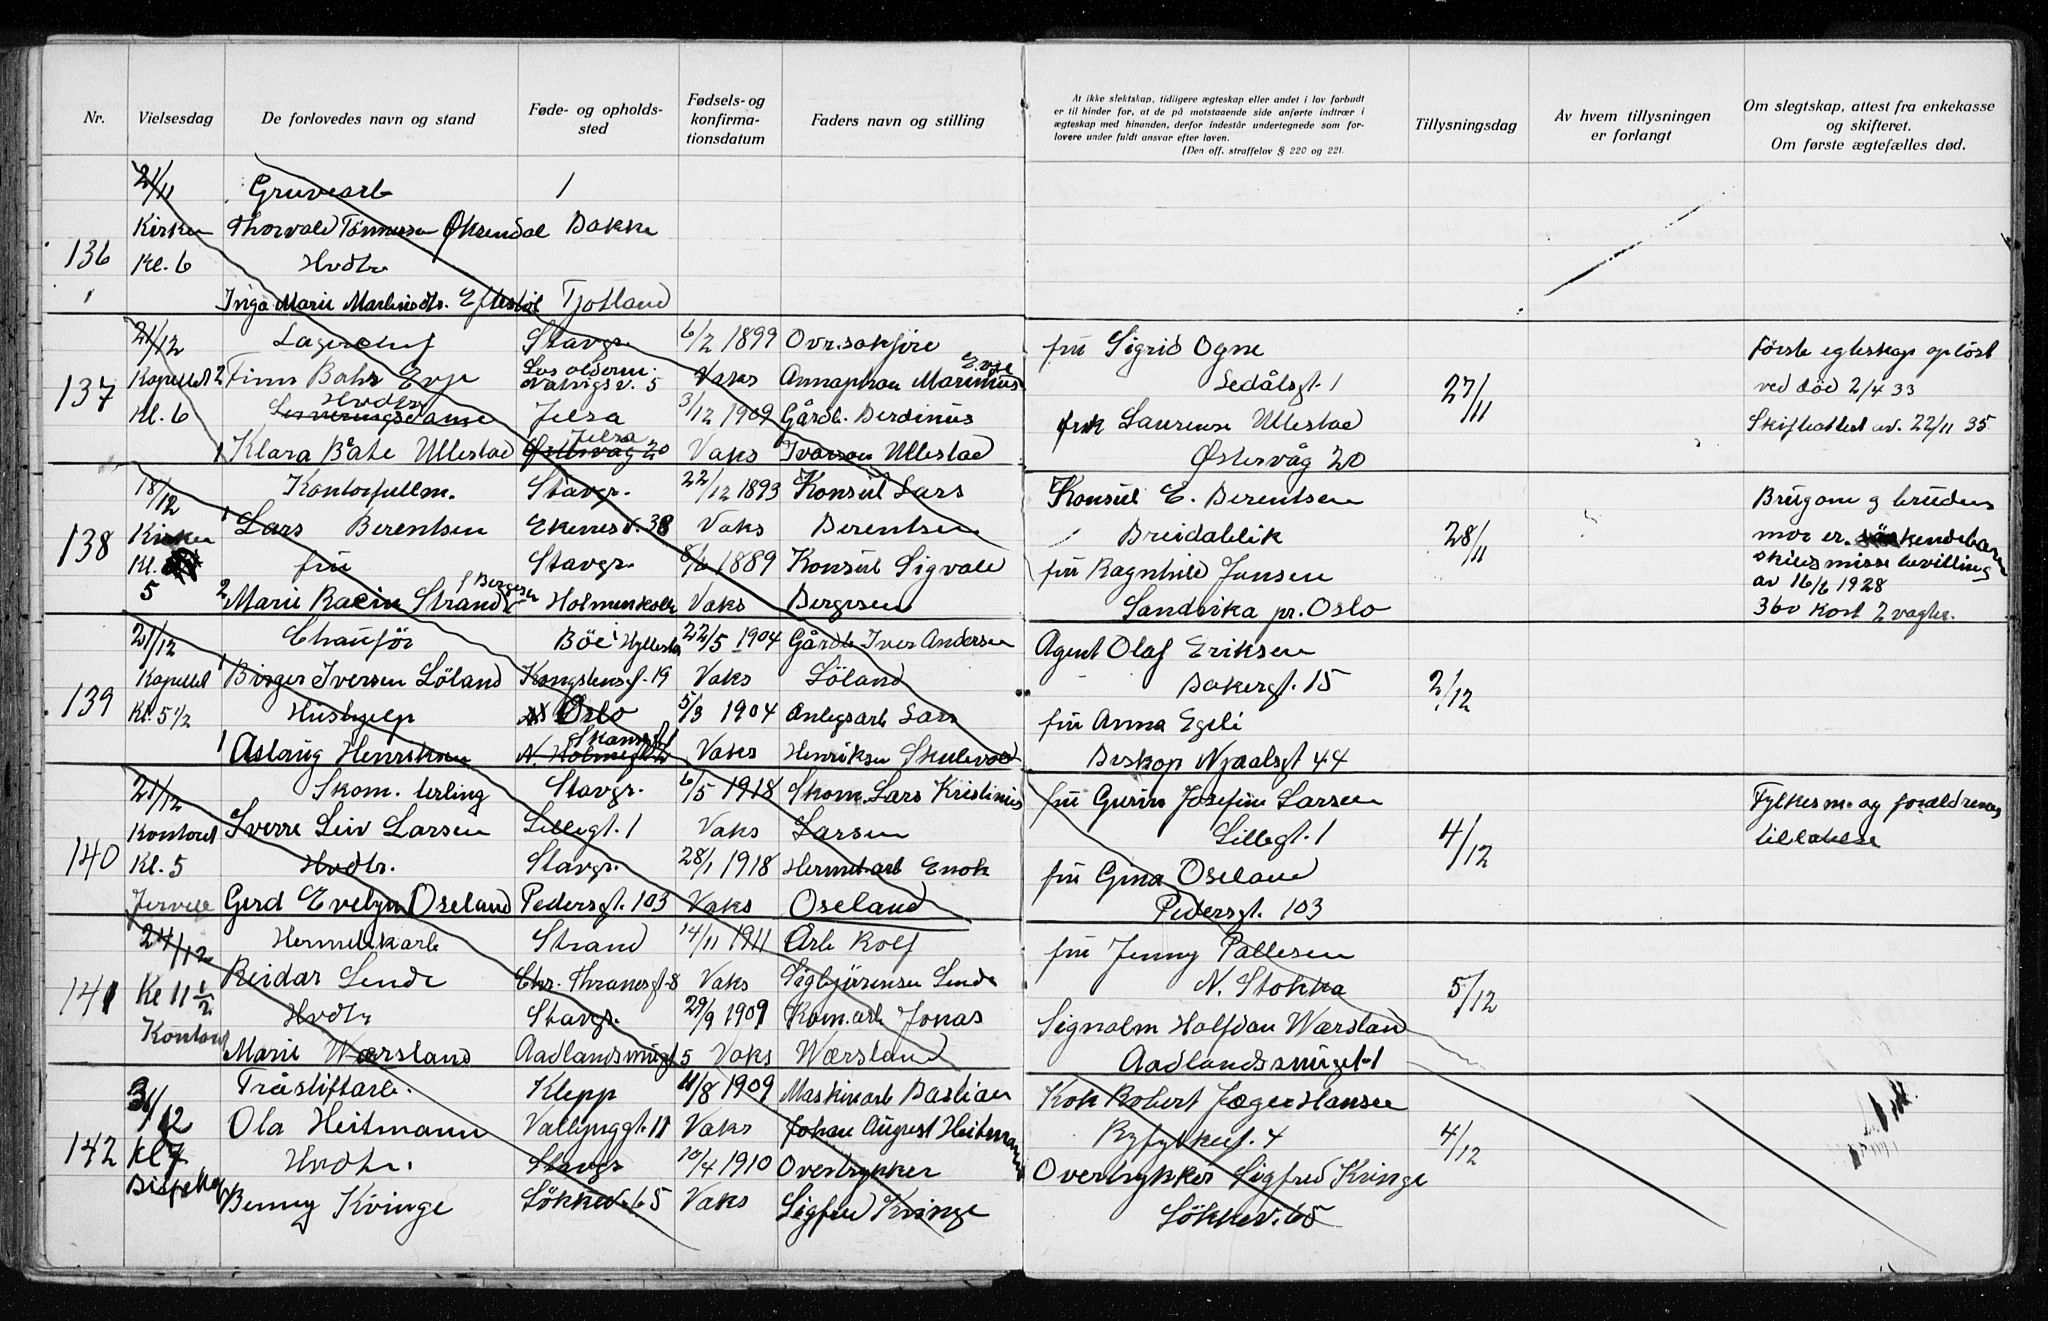 Nr.
Vielsesdag
De forlovedes navn og stand
Føde- og opholds-
sted
Fødsels- og
konfirma-
tionsdatum
Faders navn og stilling
At ikke slektskap, tidligere ægteskap eller andet i lov forbudt
er til hinder for, at de på motstaaende side anførte indtrær i
ægteskap med hinanden, derfor indestår undertegnede som for-
lovere under fuldt ansvar efter loven.
(Den off. straffelov § 220 og 221.
Tillysningsdag
Av hvem tillysningen
er forlangt
Om slegtskap, attest fra enkekasse
og skifteret.
Om første ægtefælles død.
21/11 Gruvearb
Kirken Thorvald Tønnessen Øksendal Bakke
136 Kl. 6 Hvdtr
Inga Marie Martinsdtr. Eftestøl Tjotland
21/12 Lagerchef Stavgr. 6/2 1899 Ovr.sakføre fru Sigrid Ogne Første egteskap opløst
137 Kapellet 2 Finn Bahr Evje Los olderm. Natvigsv. 5 Vaks Annaphan Marinius Evje Sedålsgt. 1 27/11 ved død 2/4 33
Kl. 6 Hvdtr Serveringsdame Jelsa 3/12 1909 Gårdb. Berdinus frk Laurense Ullestad Skifteattest av. 22/11 35
1 Klara Båte Ullestad Jelsa Østervåg 20 Vaks Ivarson Ullestad Østervåg 20
18/12 Kontorfullm. Stavgr. 22/12 1893 Konsul Lars Konsul E. Berentsen Brugom g brudens
138 Kirken 1 Lars Berentsen Ekenesv. 38 Vaks Berentsen Breidablik 28/11 mor er søskendebarn
Kl. fru Stavgr. 8/6 1889 Konsul Sigvald fru Ragnhild Jensen skilsmisse bevilling
av 16/6 1928
5 2 Marie Racin Strand f Bergesen Holmenkoln Vaks Bergesen Sandvika pr. Oslo 360 Kort 2 vagter.
21/12 Chauför Böe i Hyllestad 22/5 1904 Gårdb Iver Andersen Agent Olaf Eriksen
139 Kapellet 1 Birger Iversen Löland Kongstensgt. 19 Vaks Löland Bakergt. 15 2/12
Kl. 5 1/2 Hushjelp Oslo 5/3 1904 Anlegsarb Lars fru Anna Egeli
1 Aslaug Henriksen Skansegt 1 N. Holmegt 2 Vaks Henriksen Skulevold Biskop Njaalsgt 44
21/12 Skom. lerling Stavgr. 6/5 1918 Skom. Lars Kristinius fru Guri Josefine Larsen Fylkesm. og foreldrenes
140 Kontoret Sverre Leiv Larsen Lillegt. 1 Vaks Larsen Lillegt. 1 4/12 tillatelse
Kl. 5 Hvdtr. Stavgr. 28/1 1918 Hermet.arb Enok fru Gina Oseland
Jervell Gerd Evelyn Oseland Pedersgt. 103 Vaks Oseland Pedersgt. 103
24/12 Hermetikarb Strand 14/11 1911 Arb Rolf fru Jenny Pallesen
141 Kl 11 1/2 Reidar Lende Chr. Thranesgt. 8 Vaks Sigbjörensen Lende N. Stokka 5/12
Hvdtr Stavgr. 29/9 1909 Kom.arb Jonas Signalm Halfdan Wærsland
Kontoret Marie Wærsland Aadlandsmuget 5 Vaks Wærsland Aadlandssmuget 1
31/12 Tråsliftarb. Klepp 4/8 1909 Maskinarb Bastian Kok Robert Jæger Hansen
142 Kl 7 Ola Heitmann Vallhauggt. 11 Vaks Johan August Heitmann Ryfylkegt. 4 4/12
Hvdtr. Stavgr 10/4 1910 Overtrykker Overtrykker Sigfred Kvinge
Benny Kvinge Lökkev. 65 Vaks Sigfred Kvinge Lökkev. 65